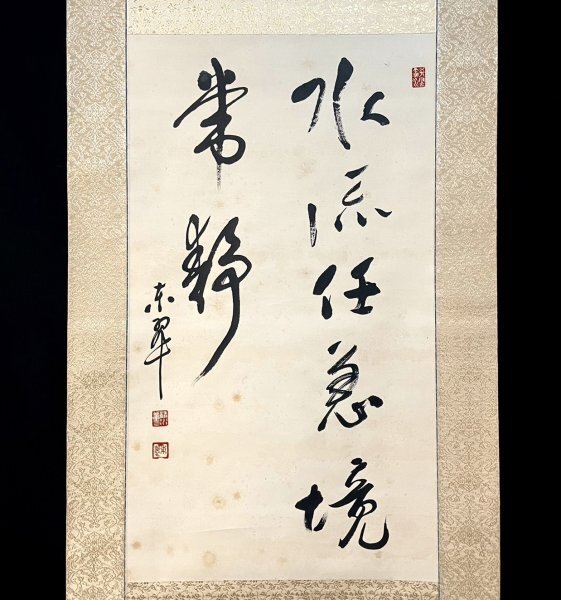 水流任急境
常静
東翠